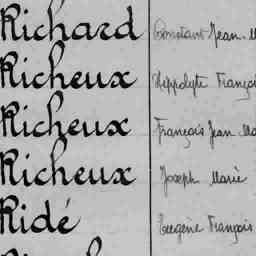 Richard Constant Jean M
Richeux Hippolyte Françoi
Richeux François Jean Ma
Richeux Joseph Marie
Ridé Eugène François